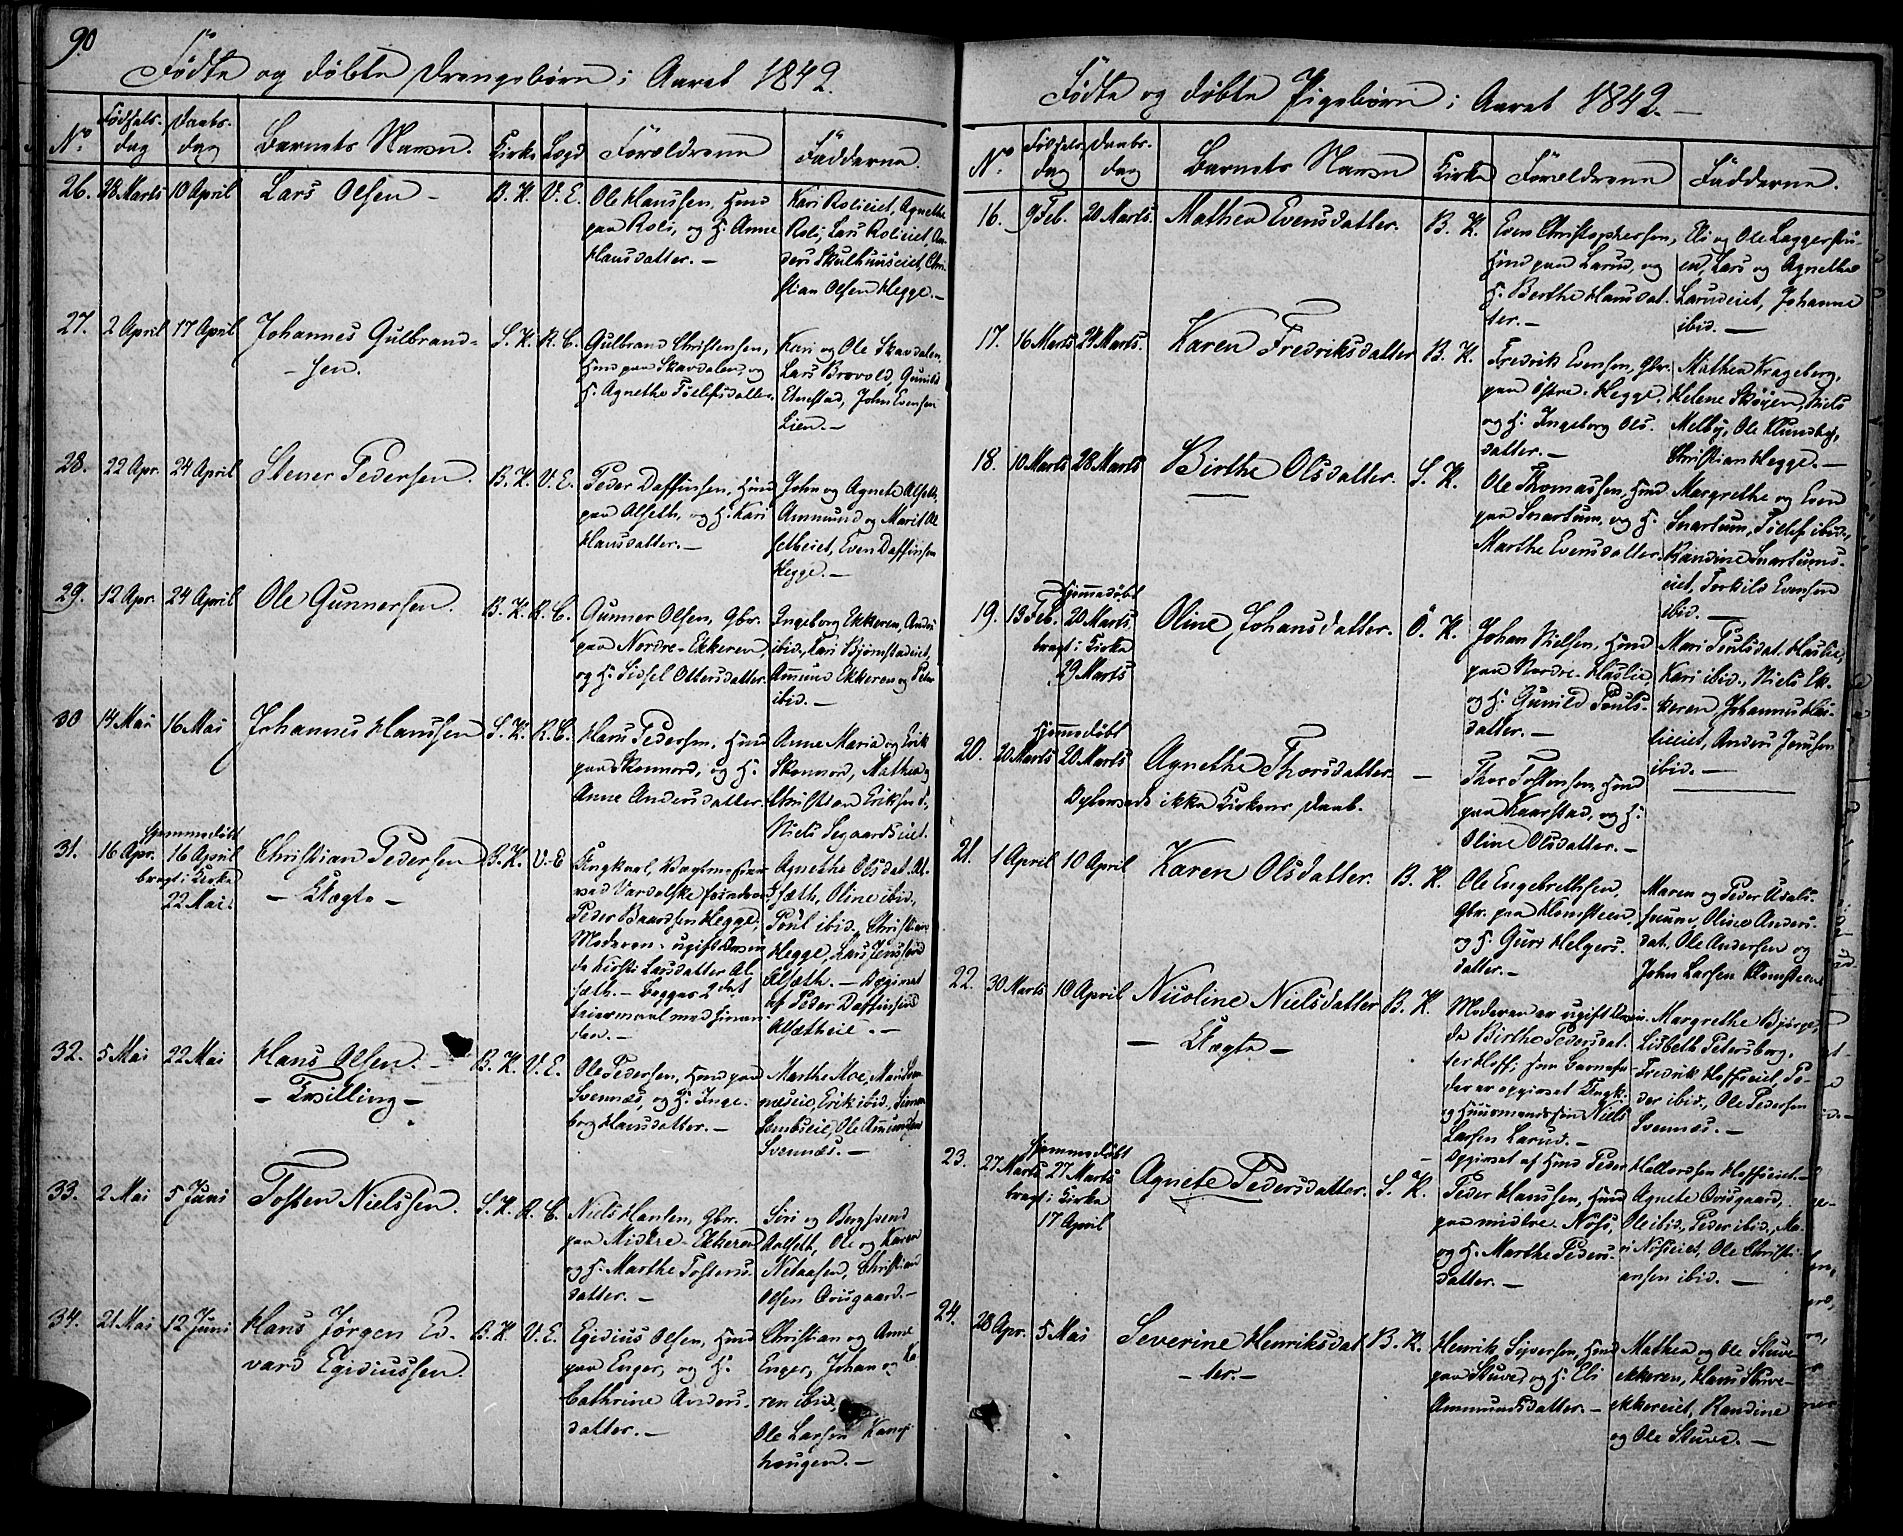 90
Fødte og døbte Drengebørn i Aaret 1842.
No Fødsels-dag Daabs-dag Barnets Navn. Kirke Lægd Forældrene Fadderne.
26. 28 Marts 10 April Lars Olsen – B. K. V. E.
Ole Hanssen, Huusmd
paa Roli, og H. Anne
Hansdatter. –
Kari Rolieiet, Agnethe
Roli, Lars Rolieiet, An-
ders Skulhuuseiet, Chri-
stian Olsen Hegge. –
27. 2 April 17 April Johannes Gulbrand-
- sen. S. K. R. C.
Gulbrand Christensen,
Huusmd paa Skavdalen, og
H. Agnethe Tollefsdatter.
Kari og Ole Skavdalen,
Lars Brovold, Gunild
Etnestad, John Evensen
Lien. –
28. 22 Apr. 24 April Stener Pedersen. B. K. V. E.
Peder Daffinsen, Huusmd
paa Alseth, og H. Kari
Hansdatter. –
John og Agnete Alseth,
Ammund og Marit Al-
setheiet, Even Daffinsen
Hegge. –
29. 12 Apr. 24 April Ole Gunnersen. B. K. R. C.
Gunner Olsen, Gbr.
paa Nordre-Ekkeren,
og H. Sidsel Ottersdatter.
Ingeborg Ekkeren, Anders
ibid., Kari Bjørnstadeiet,
Amund Ekkeren og Peder
ibid. –
30 14 Mai 16 Mai Johannes Hanssen S. K. R. C.
Hans Pedersen, Huusmd
paa Skonnord, og H.
Anne Andersdatter.
Anne Maria og Erik
Skonnord, Mathea og
Christian Eriksen S.
Niels Legaardseiet.
31. 16 Apr. Hjemmedøbt
16 April
bragt i Kirke
22 Mai. Christian Pedersen
- Uægte - B. K. V. E
Peder Baardsen Hegge,
Moderen: ugift
Kirsti Larsdatter Al-
sæth. – Begges 2det
Leiermaal med hinan-
den. –
Agnethe Olsdat. Al-
sæth, Oline ibid,
Poul ibid, Christian
Hegge, Lars Jenssen
Alsæth. – Opgivet
af Peder Daffinsen
Alsætheie. –
32. 5 Mai 22 Mai Hans Olsen. –
- Tvilling - B. K. V. E.
Ole Pedersen, Huusmd paa
Svennæs, og H. Inge-
borg Hansdatter. –
Marthe Moe, Mari
Erik ibid.,
Ole Amundsen
Svennæs. –
33. 2 Mai 5 Juni Tosten Nielssen. S. K. R. C.
Niels Hansen, Gbr.
paa Midtre-Ekkeren
og H. Marthe Tostens-
datter. –
Siri og Bergsvend
Aalseth, Ole og Karen
Nelaasen, Christian
Olsen Øvsgaard. –
34. 21 Mai 12 Juni Hans Jørgen Ed-
vard Egidiussen. B. K. V. E.
Egidius Olsen, Huusmd
paa Enger, og H.
Cathrine Anders-
datter. –
Christian og Anne
Enger, Johan og Ka-
ren ibid,
Ole Larsen Kamp-
hougen. –
Fødte og døbte Pigebørn i Aaret 1842. –
No. Fødsels-dag Daabs-dag Barnets Navn Kirke Forældrene Fadderne.
16. 9 Feb. 20 Marts. Mathea Evensdatter. B. K.
Even Christophersen,
Huusmd paa Larud, og
H. Berthe Hansdat-
ter. –
Eli og Ole Laggerstu-
en, Lars og Agnethe
Larudeiet, Johanne
ibid. –
17. 16 Marts 24 Marts. Karen Fredriksdatter B. K.
Fredrik Evensen, Gbr.
paa Østre-Hegge,
og H. Ingeborg Ols-
datter. –
Mathea Krageberg,
Helene Skøyen, Niels
Melby, Ole Klundby,
Christian Hegge. –
18. 10 Marts 28 Marts Birthe Olsdatter. S. K.
Ole Thomassen, Huusmd
paa Snartum, og H.
Marthe Evensdatter.
Margrethe og Even
Snartum, Tollef ibid.,
Randine Snartums-
eiet, Torkild Evensen
ibid. –
19. 13 Feb. Hjemmedøbt
20 Marts
bragt i Kirke
29 Marts Oline Johansdatter. Ö. K.
Johan Nielsen, Huusmd
paa Nordre-Haslie,
og H. Gunild Pouls-
datter. –
Mari Poulsdat. Haslie,
Kari ibid., Niels Ek-
keren, Johannes Has-
lieeiet, Anders Jenssen
ibid. –
20. 20 Marts Hjemmedøbt
20 Marts Agnethe Thorsdatter. –
Oplevede ikke Kirkens Daab.
Thor Tostensen, Huusmd
paa Kaarstad, og H.
Oline Olsdatter. –
21. 1 April 10 April Karen Olsdatter. B. K.
Ole Engebrethsen,
Gbr. paa Klomsteen,
og H. Guri Helgers-
datter. –
Maren og Peder
Oline Anders-
dat, Ole Andersen og
John Larsen Klomsteen
22. 30 Marts 10 April Nicoline Nielsdatter
- Uægte - B. K.
Moderen er ugift
Birthe Pedersdat-
ter Hoff; som Barnefa-
der er opgivet Ungk.
og Huusmandssøn Niels
Larsen Larud. –
Opgivet af Huusmd Peder Halvorsen Hoffseiet. –
Margrethe Bjørge,
Lisbeth Petersborg,
Fredrik Hoffseiet, Pe-
der ibid., Ole Pedersen
Svennæs. –
23. 27 Marts Hjemmedøbt
27 Marts
bragt i Kirke
17 April Agnete Pedersdatter. S. K.
Peder Hanssen, Huusmd
paa midtre Nøss,
og H. Marthe Peders-
datter. –
Agnete Øvsgaard,
Ole ibid, Peder ibid, Ma-
ri Nøsseiet, Ole Christi-
ansen ibid. –
24. 28 Apr. 5 Mai Severine Henriksdat-
- ter. – B. K.
Henrik Syversen, Huusmd
paa Stuve og H. Eli
Ammundsdatter. –
Mathea og Ole Stuve-
ekkeren, Hans Stuve-
ekkereiet, Randine
og Ole Stuve. –